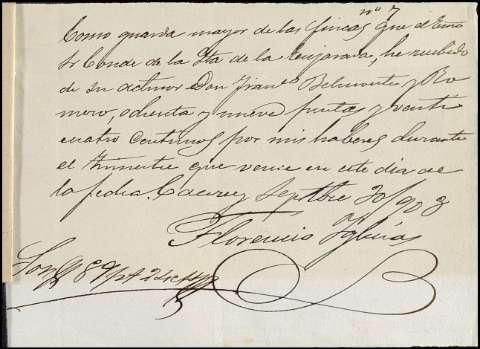 nº 7
Como guarda mayor de las fincas que el Exmo
Sr Conde de la Sta de la Enjarada, he recibido
de su Don Franº Belmonte y Ro
mero, ochenta y nueve pesetas y veinte
cuatro centimos por mis haberes durante
el trimestre que vence en este dia de
la fecha. Caceres Septbre 30/903
Florencio Iglesias
Son 89 pts 24